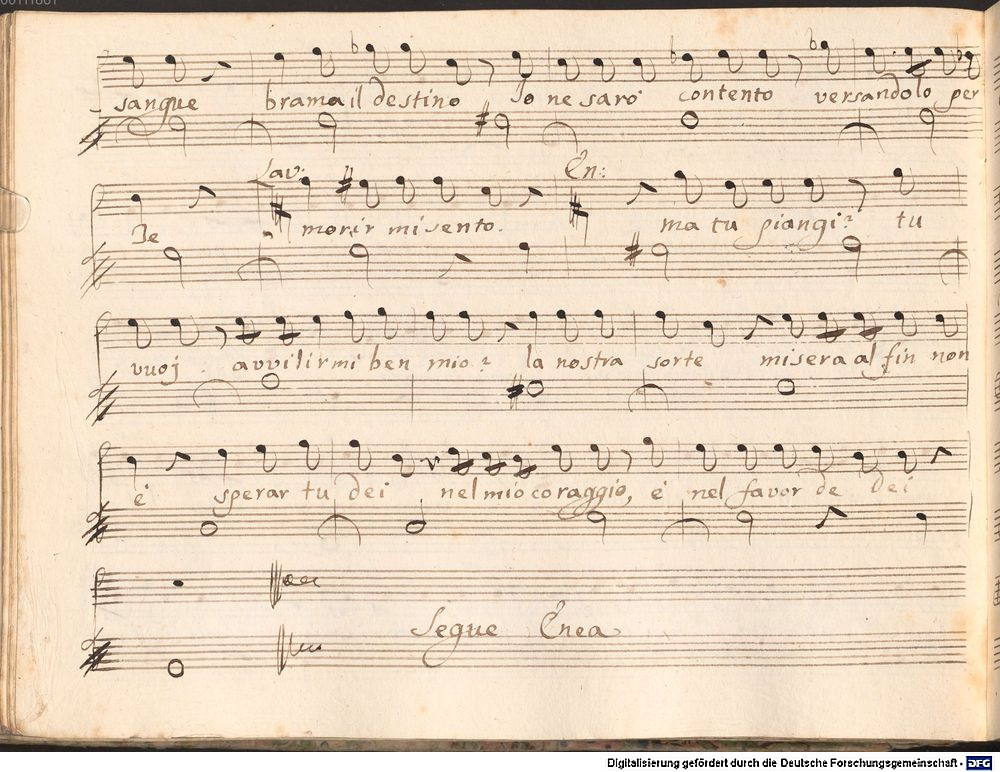 sangue brama il destino Io ne sarò contento versandolo per
Te
Lav:
morir mi sento.
En:
ma tu piangi? tu
vuoj avvilirmi ben mio? la nostra sorte misera al fin non
è sperar tu dei nel mio coraggio, è nel favor de Dei
Segue Enea
Digitalisierung gefördert durch die Deutsche Forschungsgemeinschaft - DFG